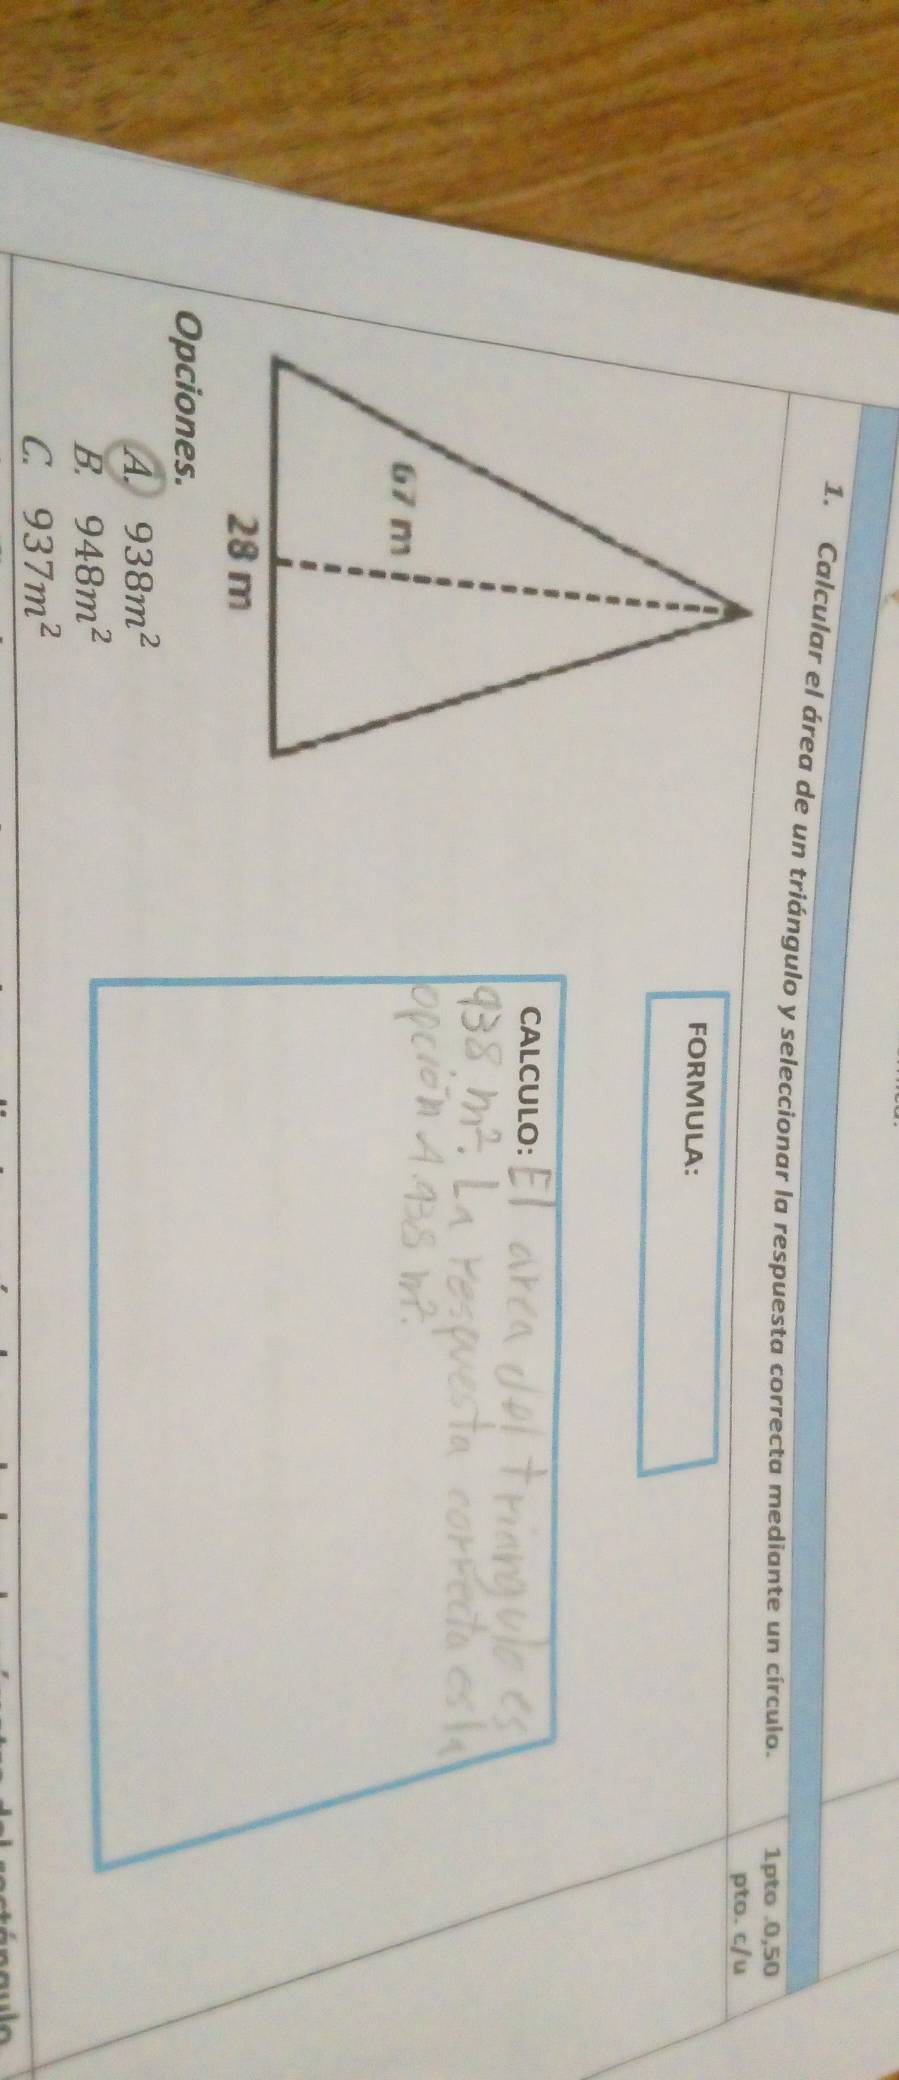 1. Calcular el área de un triángulo y seleccionar la respuesta correcta mediante un círculo.
1pto .0,50
pto. c/u
FORMULA:
67 m
28 m
CALCULO: El area del triangulo es
938 m². La respuesta correcta es la
opción A. 938 m².
Opciones.
A. 938m²
B. 948m²
C. 937m²